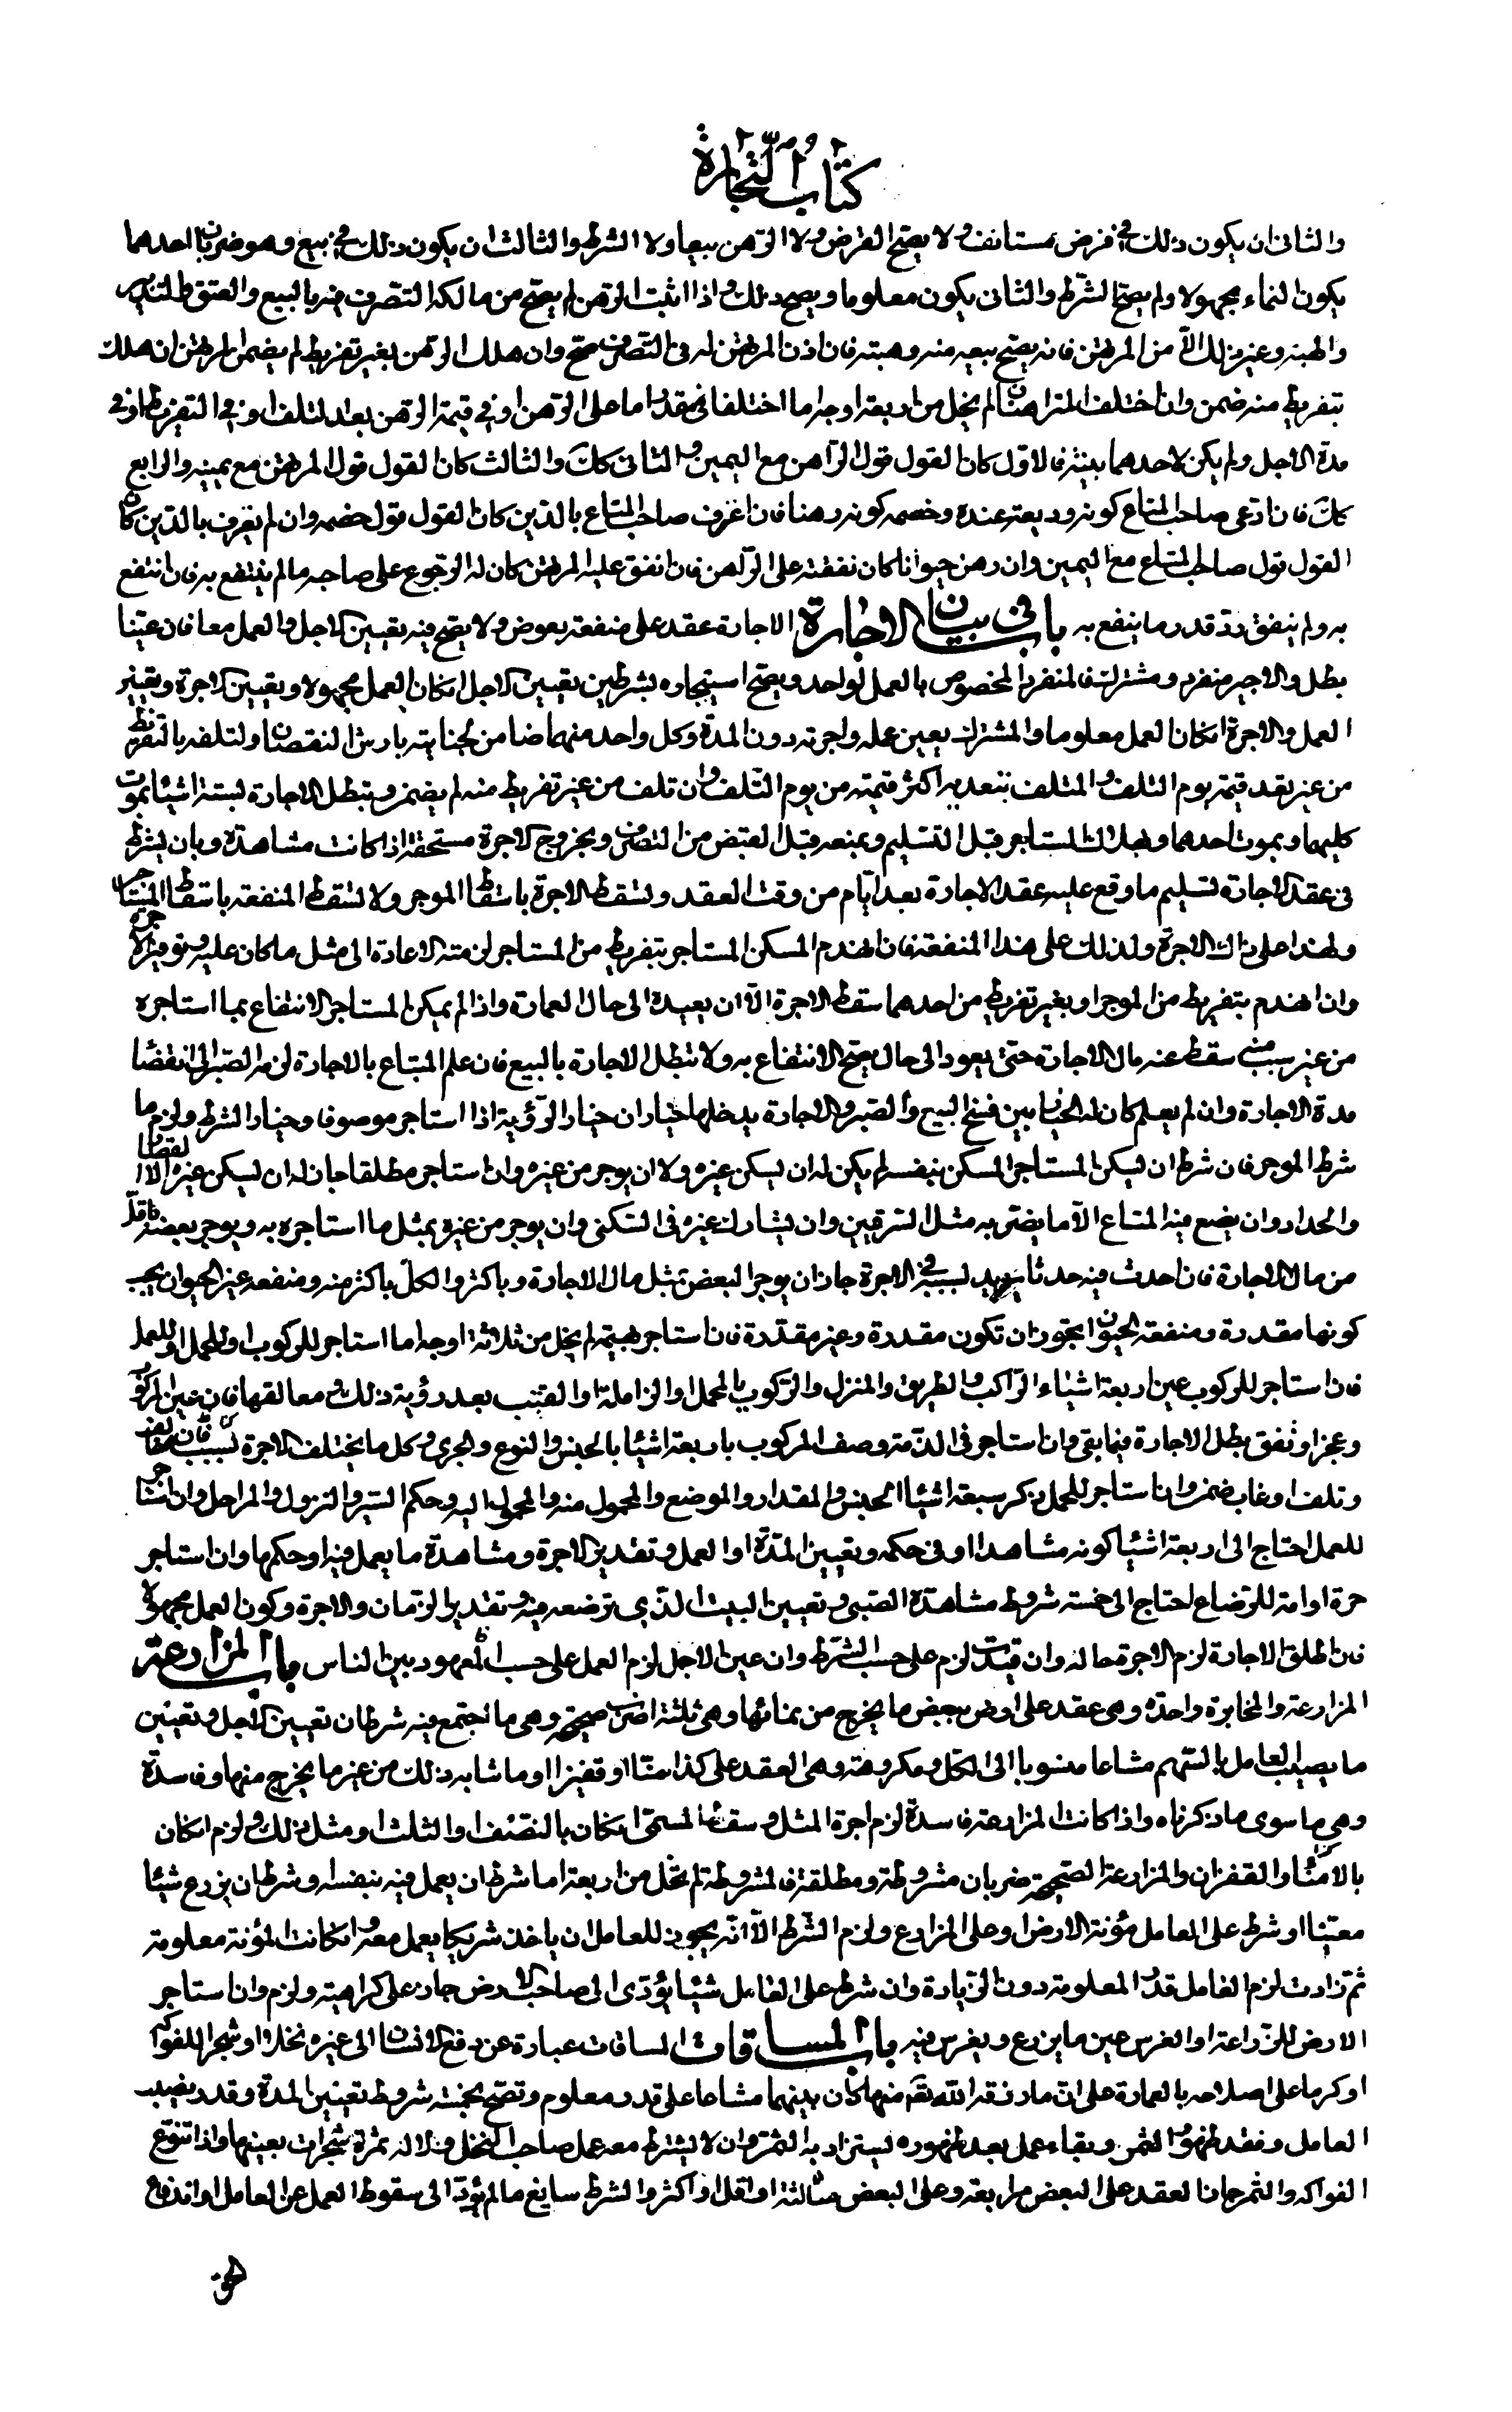 كتاب التجارة
والثانى ان يكون ذلك فى قرض مستانف ولا يصح القرض ولا الرهن بيعا ولا الشرط والثالث ان يكون ذلك فى بيع وهو ضربان احدهما
يكون النماء مجهولا ولم يصح الشرط والثانى يكون معلوما ويصح ذلك واذا ثبت الرهن لم يصح من مالكه التصرف فيه بالبيع والعتق والتدبير
والهبة وغير ذلك الا من المرتهن فانه يصح بيعه منه وهبته فان اذن المرتهن له فى التصرف صح وان هلك الرهن بغير تفريط لم يضمن المرتهن ان هلك
بتفريط منه ضمن وان اختلف المتراهنان لم يخل من اربعة اوجه اما اختلفا فى مقدار ما على الرهن او فى قيمة الرهن بعد التلف او فى التفريط او فى
مدة الاجل ولم يكن لاحدهما بينة فالاول كان القول قول الراهن مع اليمين والثانى كك والثالث كان القول قول المرتهن مع يمينه والرابع
كك فان ادعى صاحب المتاع كونه وديعة عنده وخصمه كونه رهنا فان اعرف صاحب المتاع بالدين كان القول قول خصمه وان لم يعرف بالدين كان
القول قول صاحب المتاع مع اليمين وان رهن حيوانا كان نفقته على الراهن فان انفق عليه المرتهن كان له الرجوع على صاحبه ما لم ينتفع به فان انتفع
به ولم ينفق رد قدر ما ينفع به باب فى بيان الاجارة الاجارة عقد على منفعة بعوض ولا يصح فيه تعيين الاجل والعمل معا فان عينا
بطل والاجير منفرد ومشترك فالمنفرد المخصوص بالعمل لواحد ويصح استيجاره بشرطين تعيين الاجل ان كان العمل مجهولا وتعيين الاجرة وتعيين
العمل والاجرة ان كان العمل معلوما والمشترك يعين عمله واجرته دون المدة وكل واحد منهما ضامن لجنايته بارش النقصان ولتلفه بالتفريط
من غير تعد قيمته يوم التلف والمتلف بتعديه اكثر قيمته من يوم التلف وان تلف من غير تفريط منه لم يضمن وتبطل الاجارة لستة اشياء بموت
كليهما وبموت احدهما وبهلاك المستاجر قبل التسليم وبمنعه قبل القبض من التصرف وبخروج الاجرة مستحقة اذا كانت مشاهدة وبان يشرط
فى عقد الاجارة تسليم ما وقع عليه عقد الاجارة بعد ايام من وقت العقد وتسقط الاجرة باسقاط الموجر ولا تسقط المنفعة باسقاط المستاجر
ولهذا على ذلك الاجرة ولذلك على هذا المنفعة فان انهدم المسكن المستاجر بتفريط من المستاجر لزمته الاعادة الى مثل ما كان عليه وتوفير الاجرة
وان انهدم بتفريط من الموجر او بغير تفريط من احدهما سقط الاجرة الا ان يعيده الى حال العمارة واذا لم يمكن المستاجر الانتفاع بما استاجره
من غير سبب منه سقط عنه مال الاجارة حتى يعود الى حال يصح الانتفاع به ولا تبطل الاجارة بالبيع فان علم المبتاع بالاجارة لزمه الصبر الى انقضا
مدة الاجارة وان لم يعلم كان له الخيار بين فسخ البيع والصبر والاجارة يدخلها خياران خيار الرؤية اذا استاجر موصوفا وخيار الشرط ولزم ما
شرط الموجر فان شرط ان يسكن المستاجر المسكن بنفسه لم يكن له ان يسكن غيره ولا ان يوجر من غيره وان استاجر مطلقا جاز له ان يسكن غيره الا القصار
والحداد وان يضع فيه المتاع الا ما يضر به مثل السرقين وان يشارك غيره فى السكنى وان يوجر من غيره بمثل ما استاجره به ويوجر بعضه باقل
من مال الاجارة فان احدث فيه حدثا يزيد بسببه فى الاجرة جاز ان يوجر البعض بمثل مال الاجارة وباكثر والكل باكثر منه ومنفعة غير الحيوان يجب
كونها مقدرة ومنفعة الحيوان يجوز ان تكون مقدرة وغير مقدرة فان استاجر بهيمة لم يخل من ثلاثة اوجه اما استاجر للركوب او للحمل او للعمل
فان استاجر للركوب عين اربعة اشياء الراكب والطريق والمنزل والركوب بالمحمل او الزاملة او القتب بعد رؤية ذلك ومعالقها فان عين المركوب
وعجز او نفق بطل الاجارة فيما بقى وان استاجر فى الذمة وصف المركوب باربعة اشيا بالجنس والنوع والجرى وكل ما يختلف الاجرة بسببه فان
وتلف او غاب ضمن وان استاجر للحمل ذكر سبعة اشيا الجنس والمقدار والموضع والمحمول منه والمحمول اليه وحكم السير والنزول والمراحل وان استاجر
للعمل احتاج الى اربعة اشيا كونه مشاهدا او فى حكمه وتعيين المدة او العمل وتقدير الاجرة ومشاهدة ما يعمل فيه او حكمها وان استاجر
حرة او امة للرضاع احتاج الى خمسة شروط مشاهدة الصبى وتعيين البيت الذى ترضعه فيه وتقدير الزمان والاجرة وكون العمل مجهولا
فان اطلق الاجارة لزم الاجرة حالة وان قيدت لزم على حسب الشرط وان عين الاجل لزم العمل على حسب المعهود بين الناس باب المزارعة
المزارعة والمخابرة واحدة وهى عقد على ارض ببعض ما يخرج من نمائها وهى ثلثة اضرب صحيحة وهى ما اجتمع فيه شرطان تعيين الاجل وتعيين
ما يصيب العامل بالسهم مشاعا منسوبا الى الكل ومكروهة وهى العقد على كذا منا او قفيزا او ما شابه ذلك من غير ما يخرج منها وفاسدة
وهى ما سوى ما ذكرناه واذا كانت المزارعة فاسدة لزم اجرة المثل وسقط المسمى ان كان بالنصف او الثلث او مثل ذلك ولزم ان كان
بالامناء او القفزان والمزارعة الصحيحة ضربان مشروطة ومطلقة فالمشروطة لم تخل من اربعة اما شرط ان يعمل فيه بنفسه وشرط ان يزرع شيئا
معينا او شرط على العامل مؤنة الارض او على المزارع ولزم الشرط الا انه يجوز للعامل ان ياخذ شريكا يعمل معه وان كانت المؤنة معلومة
ثم زادت لزم العامل قدر المعلومة دون الزيادة وان شرط على العامل شيئا يؤدى الى صاحب الارض جاز على كراهية ولزم وان استاجر
الارض للزراعة او الغرس عين ما يزرع ويغرس فيه باب المساقات المساقات عبارة عن دفع الانسان الى غيره نخلا او شجر الفواكه
او كرما على اصلاحه بالعمارة على ان ما رزقه الله تعالى منها كان بينهما مشاعا على قدر معلوم وتصح بخمسة شروط تعيين المدة وقدر نصيب
العامل وفقد ظهور الثمر وبقاء عمل بعد ظهوره يستزاد به الثمر وان لا يشترط معه عمل صاحب النخل ولا له ثمرة شجرات بعينها واذا تنوع
الفواكه والثمر جاز العقد على البعض مرابعة وعلى البعض مثالثة او اقل او اكثر والشرط سايغ ما لم يؤد الى سقوط العمل عن العامل او